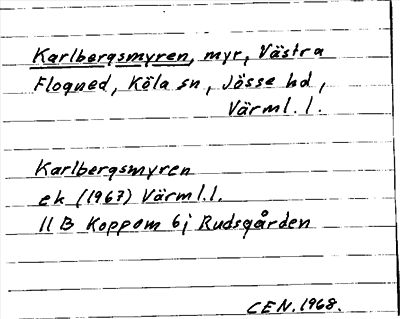 Karlbergsmyren, myr, Västra
Flogned, Köla sn, Jösse hd,
Värml. l.
Karlbergsmyren
ek (1967) Värml.l.
11 B Koppom 6j Rudsgården
CEN. 1968.